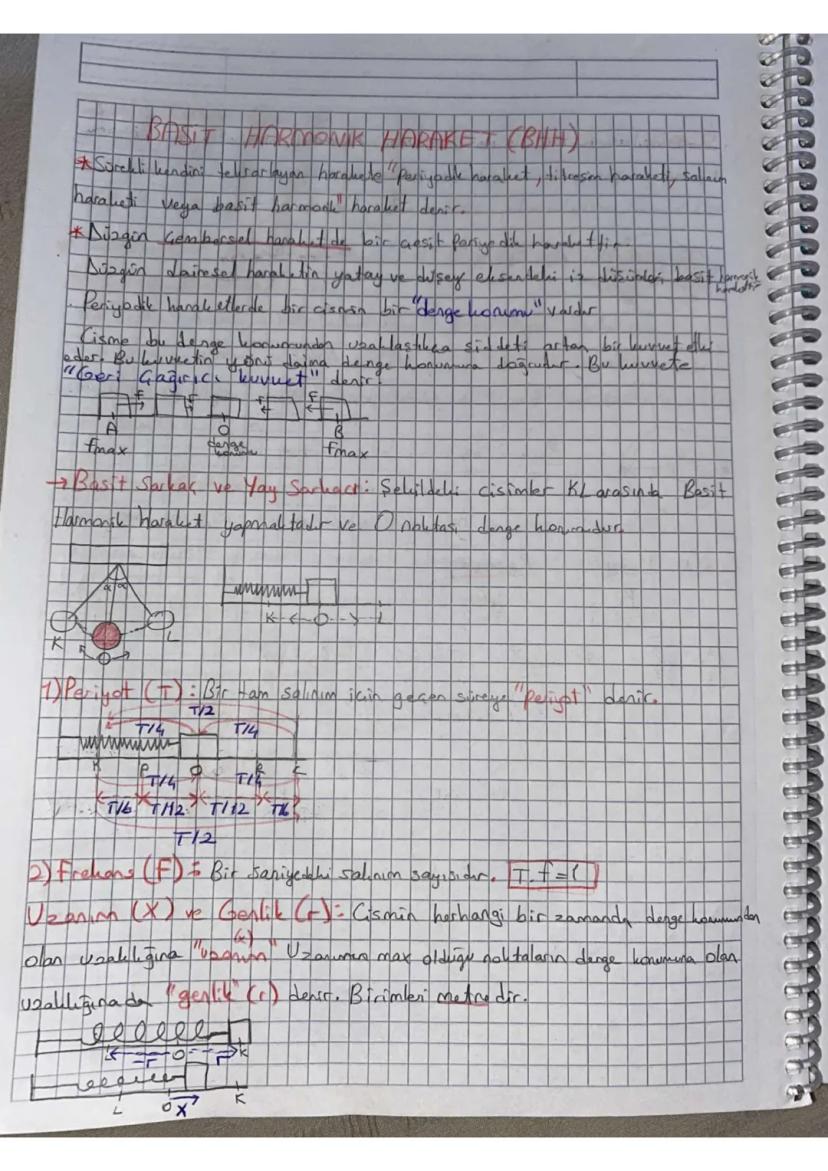 BASİT HARMONİK HARAKET (BHH)
*Sürekli kendini tekrarlayan harakete "Periyadik haraket, titresım haraketi, salınım
haraketi veya basit harmonik" haraket denir.
*Düzgün Çembersel haraket de bir çeşit Periyodik harakettir.
Düzgün dairesel haraketin yatay ve düşey eksendeki iz düşümleri basit harmonik harakettir
Periyadik haraketlerde bir cismin bir "denge konumu" vardır
Cisme bu denge konumundan uzaklastıkca siddeti artan bir kuvvet etki
eder. Bu kuvvetin yönü daima denge konumuna doğrudur. Bu kuvvete
"Geri Çağırıcı kuvvet" denir.
F F F F
A O B
fmax denge konumu fmax
→Basit Sarkac ve Yay Sarkacı: Şekildeki cisimler KL arasında Basit
Harmonik haraket yapmaktadır ve O noktası denge konumudur.
α α
K L
O
K O L
1) Periyot (T): Bir tam salınım icin geçen süreye "Periyot" denir.
T/2
T/4 T/4
K P O R L
T/4 T/4
T/6 T/12 T/12 T/6
T/2
2) Frekans (F): Bir saniyedeki salınım sayısıdır. T.f=1
Uzanım (X) ve Genlik (r): Cismin herhangi bir zamanda denge konumundan
olan uzaklığına "uzanım" (x) Uzanımın max olduğu noktaların denge konumuna olan
uzaklığına da "genlik" (r) denir. Birimleri metredir.
L -r O r K
L O X K